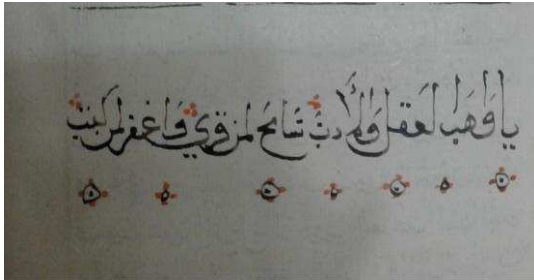 يا وَاهَبَ لعَقل وَالأدبَ سَامح لمن قري وَاغفر لمن كتب